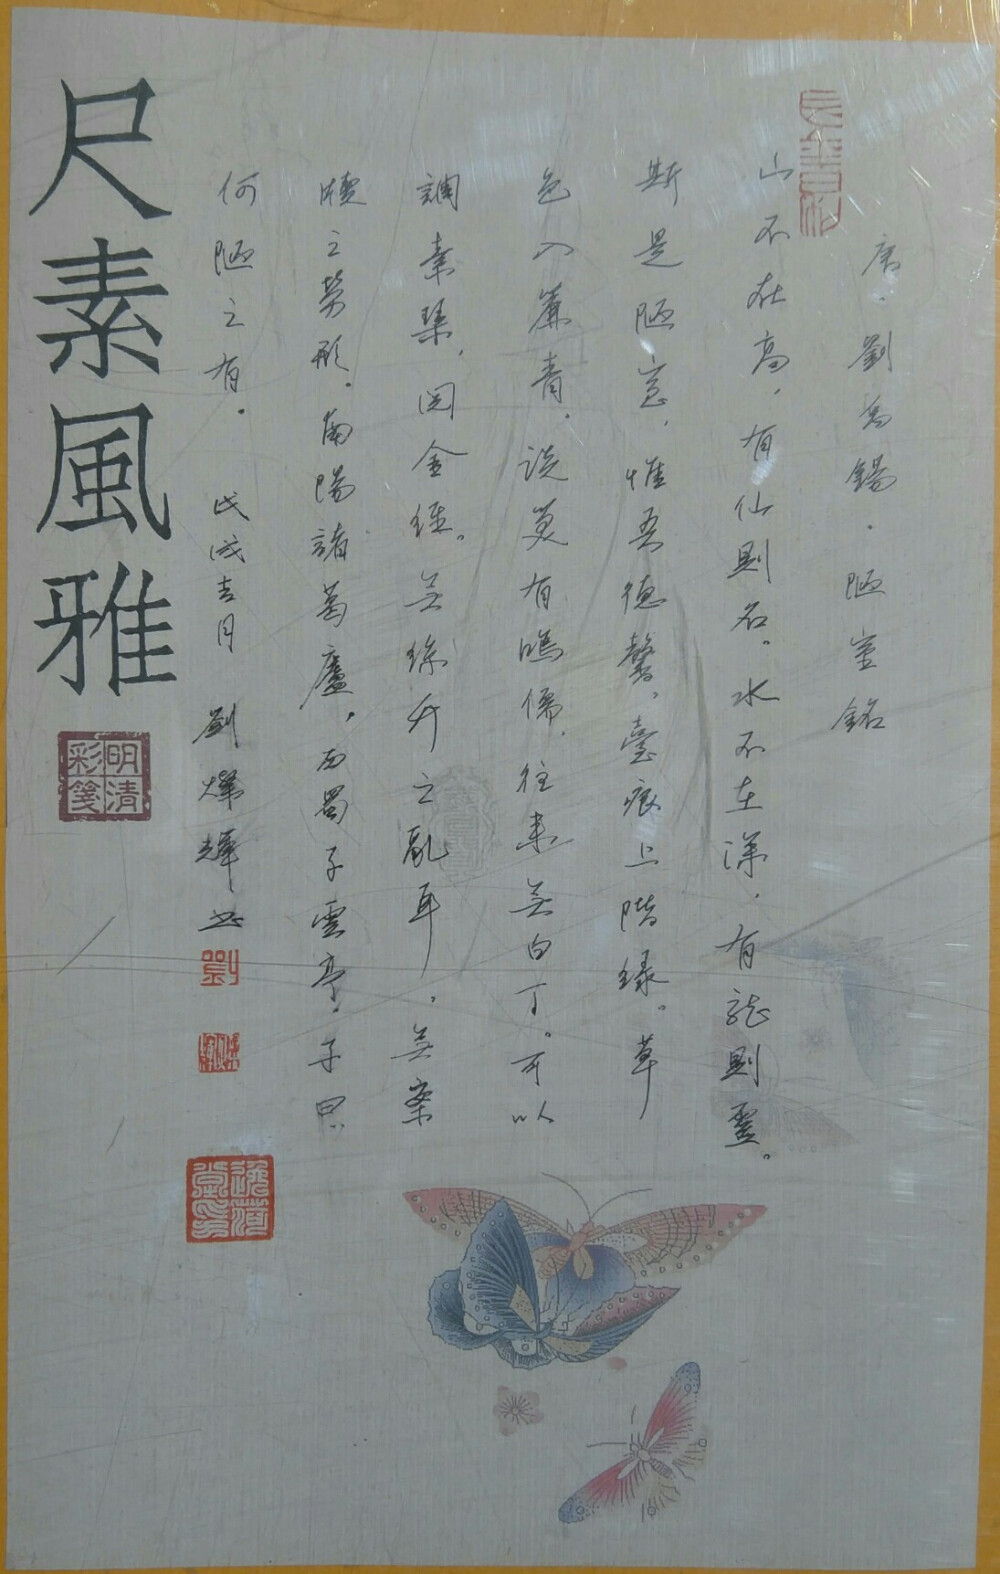 唐·劉禹錫·陋室銘
山不在高,有仙則名。水不在深,有龍則靈。
斯是陋室,惟吾德馨,臺痕上階綠。草
色入簾青,談笑有鴻儒,往來無白丁。可以
調素琴,閱金經。無絲竹之亂耳,無案
牘之勞形。南陽諸葛廬,西蜀子雲亭,子曰:
何陋之有。 戊戌吉月 劉輝書
劉
尺素風雅
明清彩箋